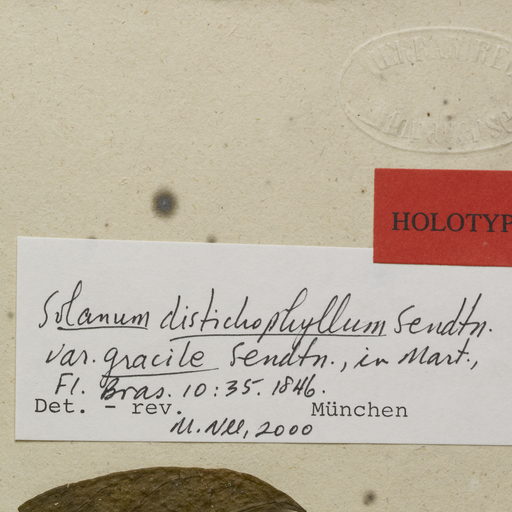 HOLOTYP
Solanum distichophyllum Sendtn.
var. gracile Sendtn., in Mart.,
Fl. Bras. 10:35. 1846.
Det. - rev. München
M. Nee, 2000